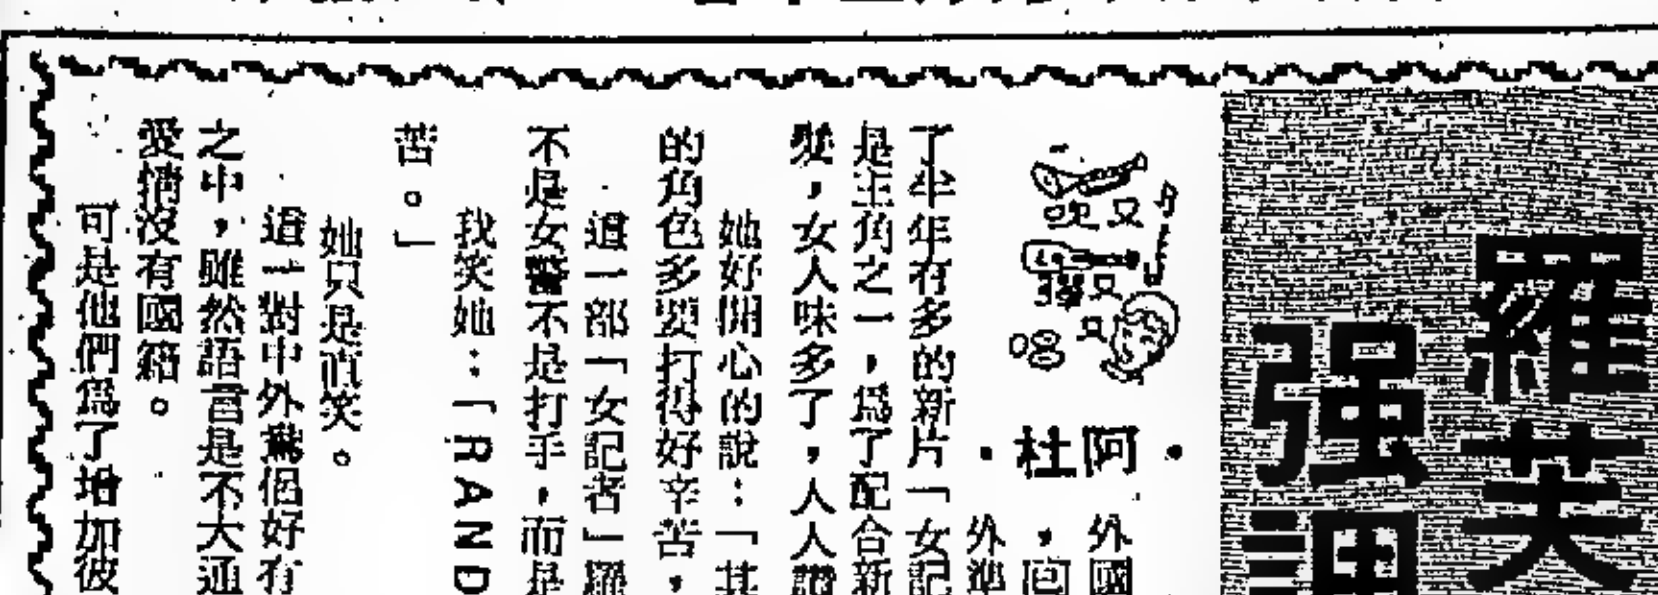 羅芙
强調
又吹
又彈
又唱
·阿杜·
外國
，
外
了半年有多的新片「女記
是主角之一，爲了配合新
髮，女人味多了，人人讚
她好開心的說：「其
的角色多要打得好辛苦，
這一部「女記者」羅
不是女警不是打手，而是
我笑她：「RAND
苦。」
她只是直笑。
這一對中外鴛侶好有
之中，雖然語言是不大通
愛情沒有國籍。
可是他們爲了增加彼